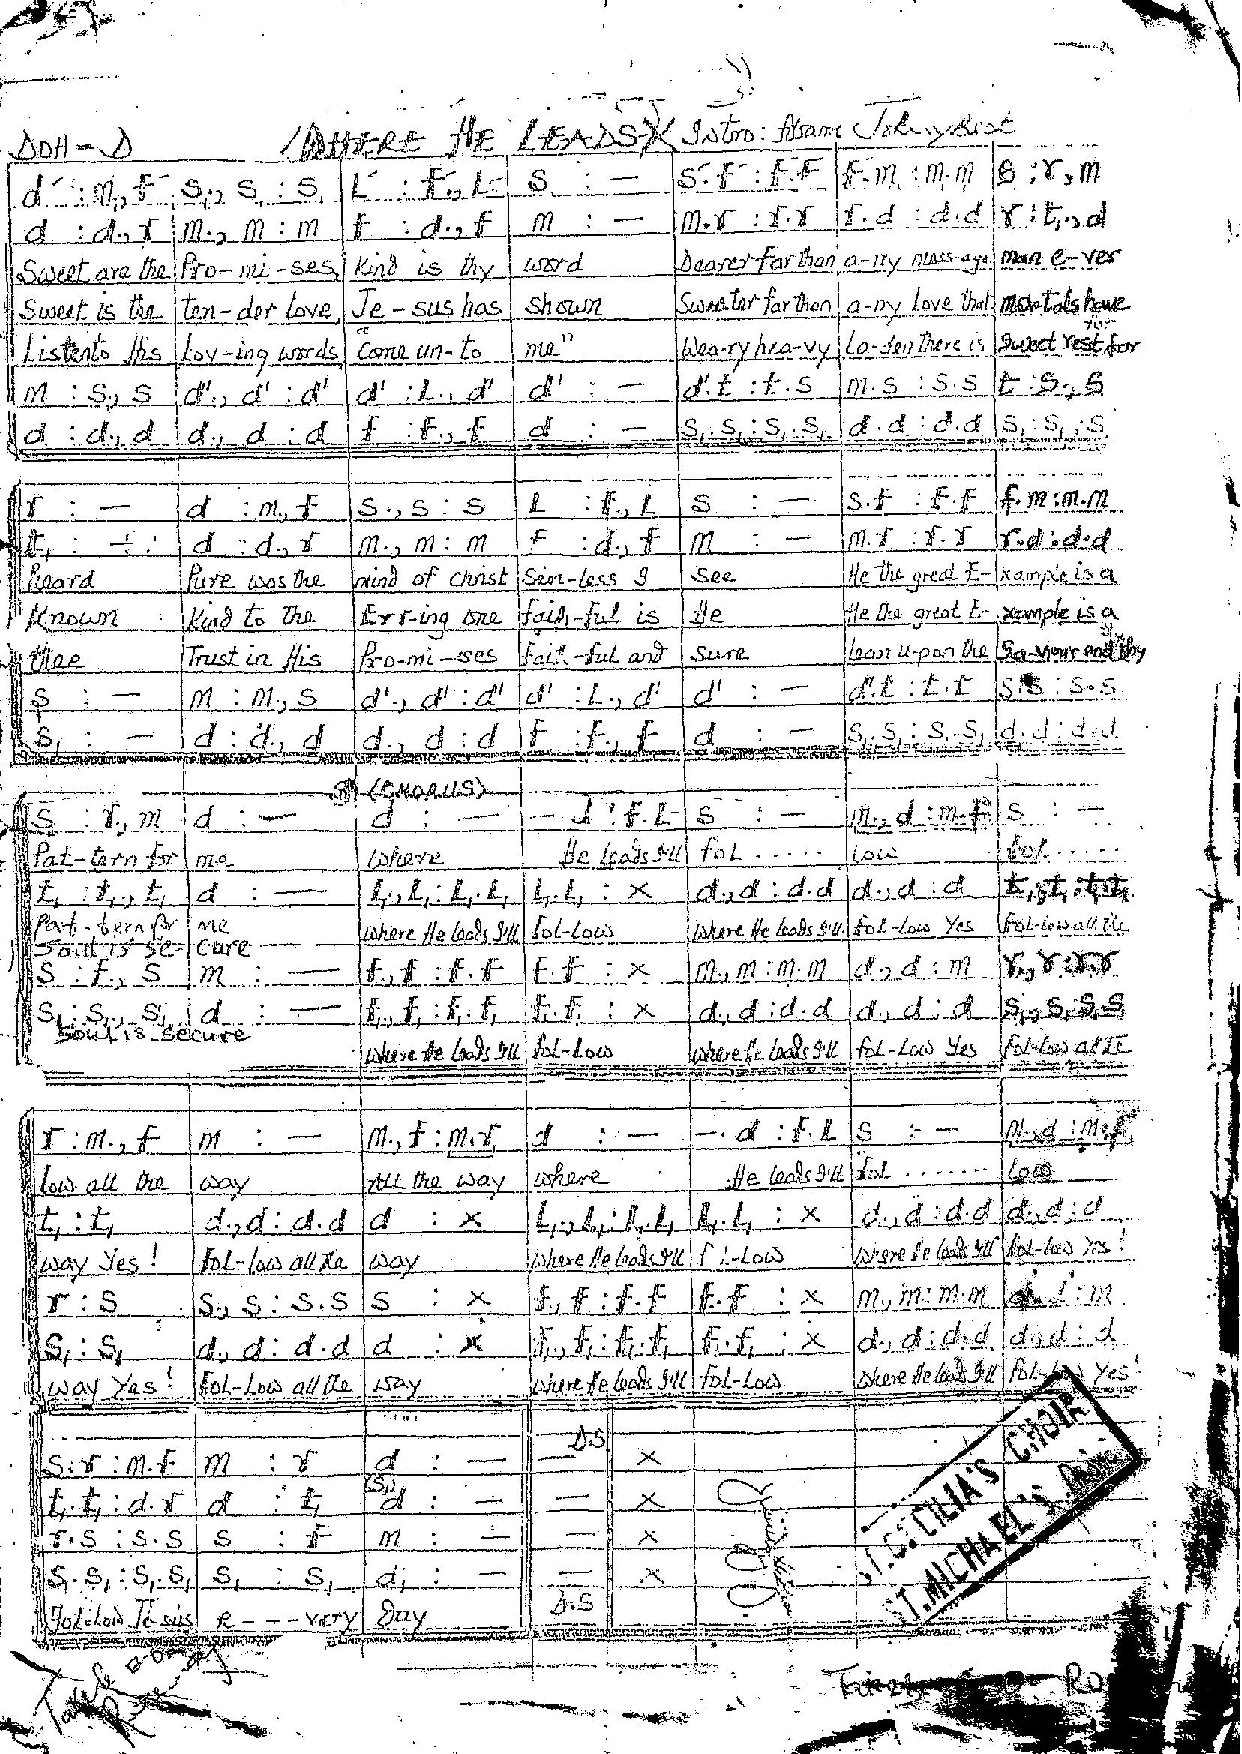 DOH - D (WHERE HE LEADS) Intro:
d : m., f | s., s : s | L : f., L | s : — | s.f : f.f | f.m : m.m | s : r., m
d : d., r | m., m : m | f : d., f | m : — | m.r : r.r | r.d : d.d | r : t,., d
Sweet are the | Pro-mi-ses | Kind is thy | word | Dearer far than | a-ny mess-age | man e-ver
Sweet is the | ten-der love | Je-sus has | shown | Sweeter far than | a-ny love that | mortals have
Listen to His | Lov-ing words | "Come un-to | me" | Wea-ry hea-vy | La-den there is | Sweet rest for
m : s., s | d'., d' : d' | d' : L., d' | d' : — | d'.t : t.s | m.s : s.s | t : s., s
d : d., d | d., d : d | f : f., f | d : — | s,.s, : s,.s, | d.d : d.d | s, : s, . s
r : — | d : m., f | s., s : s | L : f., L | s : — | s.f : f.f | f.m : m.m
t, : — | d : d., r | m., m : m | f : d., f | m : — | m.r : r.r | r.d : d.d
Heard | Pure was the | mind of Christ | Sin-less I | see | He the great E- | xample is a
Known | Kind to the | Err-ing one | faith-ful is | He | He the great E- | xample is a
thee | Trust in His | Pro-mi-ses | Faith-ful and | sure | Lean u-pon the | Sa-viour and thy
s : — | m : m., s | d'., d' : d' | d' : L., d' | d' : — | d'.t : t.t | s.s : s.s
s, : — | d : d., d | d., d : d | f : f., f | d : — | s,.s, : s,.s, | d.d : d.d
(CHORUS)
s : r., m | d : — | d : — | — d : f.L | s : — | m., d : m.f | s : —
Pat-tern for | me | where | He leads I'll | fol ..... | low | fol .....
t, : t,., t, | d : — | L,., L, : L,.L, | L,.L, : x | d., d : d.d | d., d : d | t,., t, : t,.t,
Pat-tern for | me | where He leads I'll | fol-low | where He leads I'll | fol-low Yes | Fol-low all the
Soul is se- | cure
s : f., s | m : — | f., f : f.f | f.f : x | m., m : m.m | d., d : m | r., r : r.r
s, : s,., s, | d : — | f,., f, : f,.f, | f,.f, : x | d., d : d.d | d., d : d | s,., s, : s,.s
Soul is secure
where He leads I'll | fol-low | where He leads I'll | fol-low Yes | fol-low all the
r : m., f | m : — | m., f : m.r | d : — | —. d : f.L | s : — | m., d : m.f
low all the | way | All the way | where | He leads I'll | fol ....... | low
t, : t, | d., d : d.d | d : x | L,., L, : L,.L, | L,.L, : x | d., d : d.d | d., d : d
way Yes! | fol-low all the | way | where He leads I'll | f l-low | where He leads I'll | fol-low Yes!
r : s | s., s : s.s | s : x | f., f : f.f | f.f : x | m., m : m.m | : m
s, : s, | d., d : d.d | d : x | f,., f, : f,.f, | f,.f, : x | d., d : d.d | d., d : d
way Yes! | fol-low all the | way | where He leads I'll | fol-low | where He leads I'll | fol-low Yes!
D.S
s.r : m.f | m : r | d : — | — | x
(s,)
t,.t, : d.r | d : t, | d : — | — | x
r.s : s.s | s : f | m : — | — | x
s,.s, : s,.s, | s, : s, | d, : — | — | x
Follow Jesus | e - - - very | Day | D.S
ST. CECILIA'S CHOIR
ST. MICHAEL'S